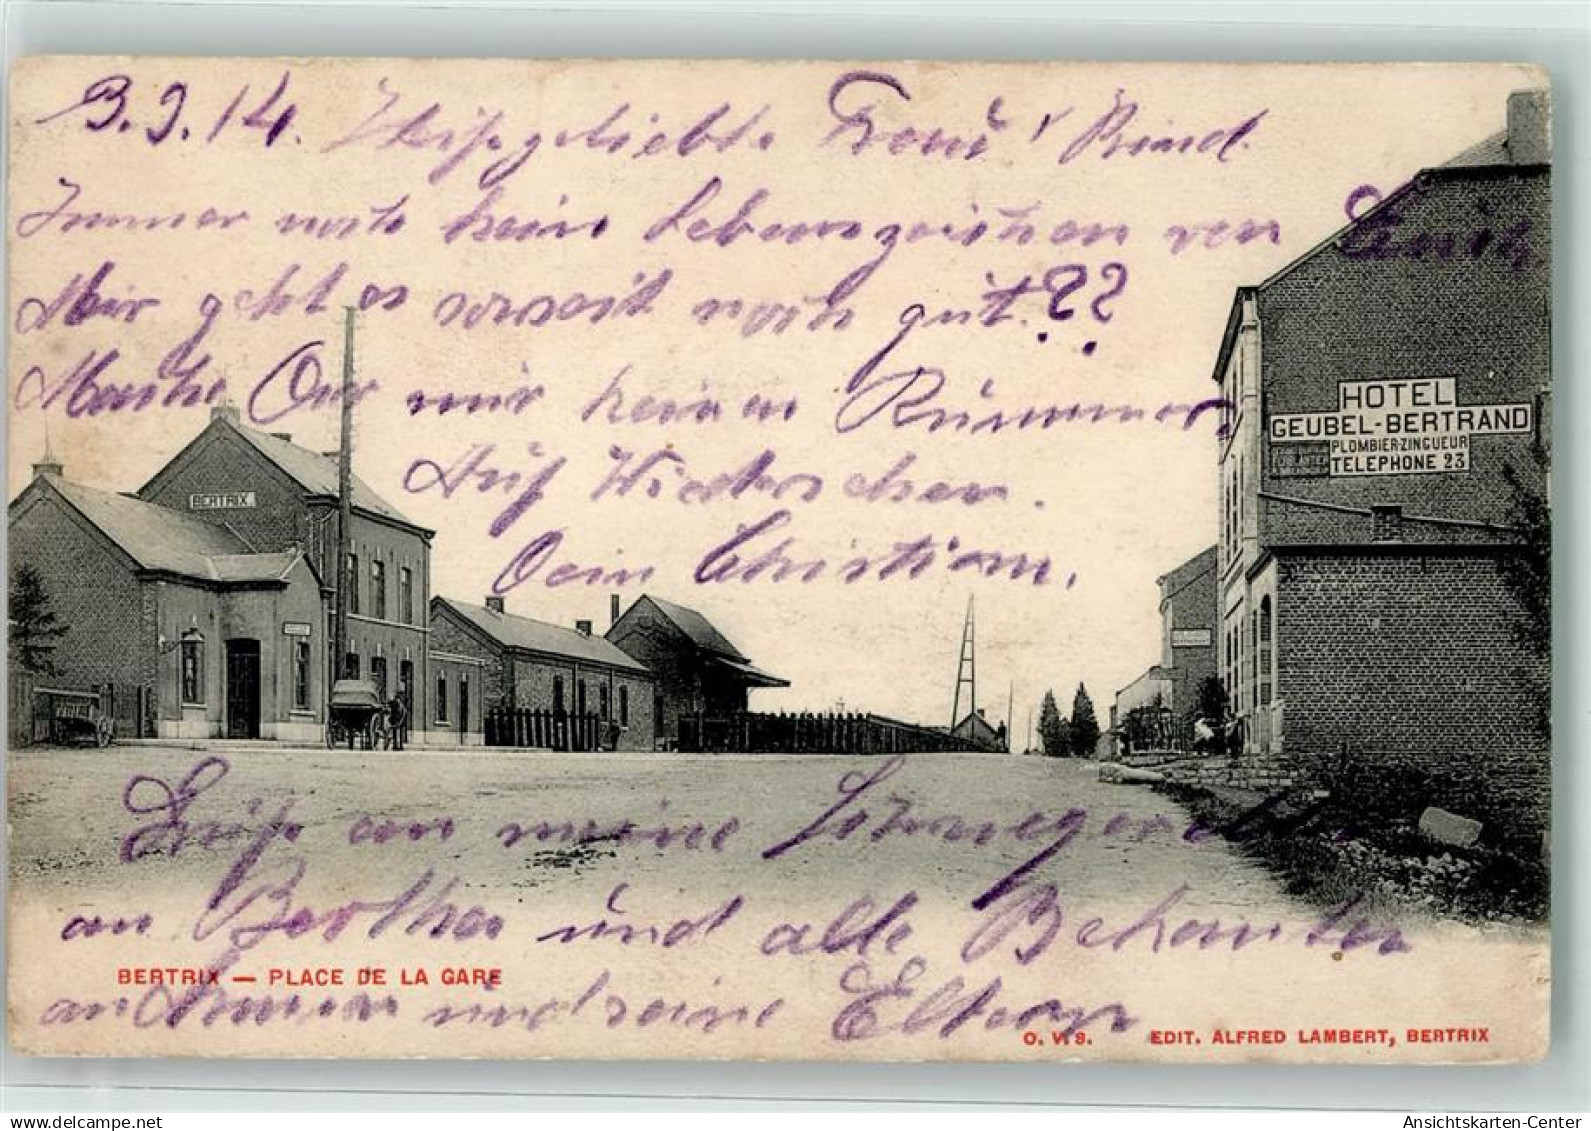 3.9.14. Heißgeliebte Frau! Kind
Immer noch kein Lebenszeichen von Euch
Mir geht es soweit noch gut.??
Mache Dir mir keinen Kummer
Auf Wiedersehen.
Dein Christian.
HOTEL
GEUBEL-BERTRAND
PLOMBIER-ZINGUEUR
TELEPHONE 23
BERTRIX
Gruß an meine Schwiegerelt
an Bertha und alle Bekannten
an und seine Eltern
BERTRIX — PLACE DE LA GARE
O. V. S. EDIT. ALFRED LAMBERT, BERTRIX
www.delcampe.net
Ansichtskarten-Center